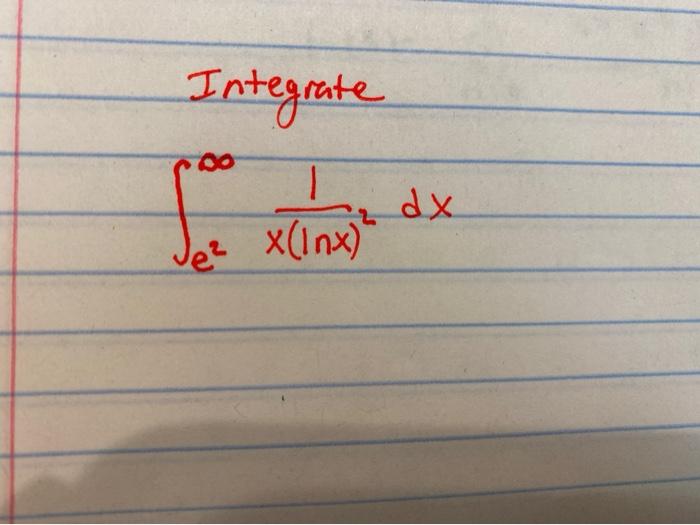 Integrate
∫_{e²}^{∞} 1/(x(lnx)²) dx